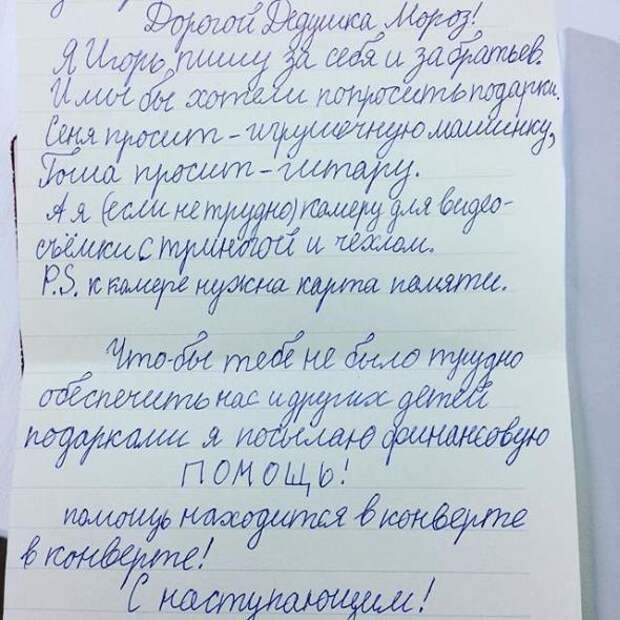 Дорогой Дедушка Мороз!
Я Игорь, пишу за себя и за братьев.
И мы бы хотели попросить подарки.
Сеня просит - игрушечную машинку,
Гоша просит - гитару.
А я (если не трудно) камеру для видео-
съёмки с триногой и чехлом.
P.S. к камере нужна карта памяти.
Что-бы тебе не было трудно
обеспечить нас и других детей
подарками я посылаю финансовую
ПОМОЩЬ!
помощь находится в конверте
в конверте!
С наступающим!